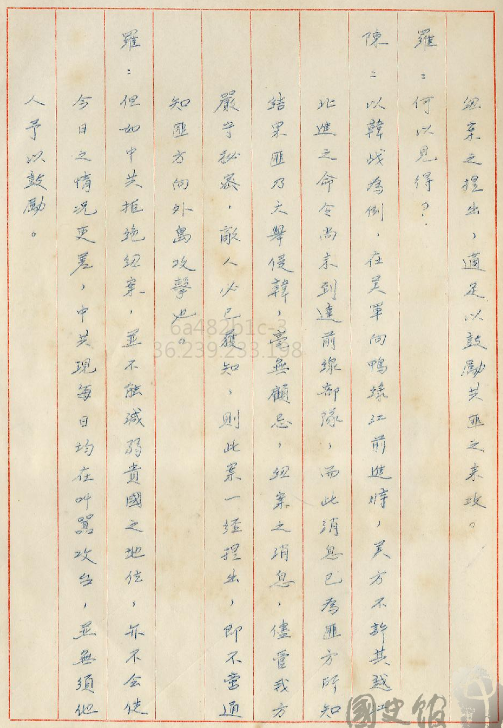 紐案之提出，適足以鼓勵共匪之來攻。
羅：何以見得？
陳：以韓戰為例，在美軍向鴨綠江前進時，美方不許其越江
北進之命令尚未到達前線部隊，而此消息已為匪方所知
結果匪乃大舉侵韓，毫無顧忌，紐案之消息，儘管我方
嚴守秘密，敵人必已獲知，則此案一經提出，即不啻通
知匪方向外島攻擊也。
羅：但如中共拒絕紐案，並不能減弱貴國之地位，亦不會使
今日之情況更差，中共現每日均在叫囂攻台，並無須他
人予以鼓勵。
6a482b1c-3
36.239.233.198
國史館